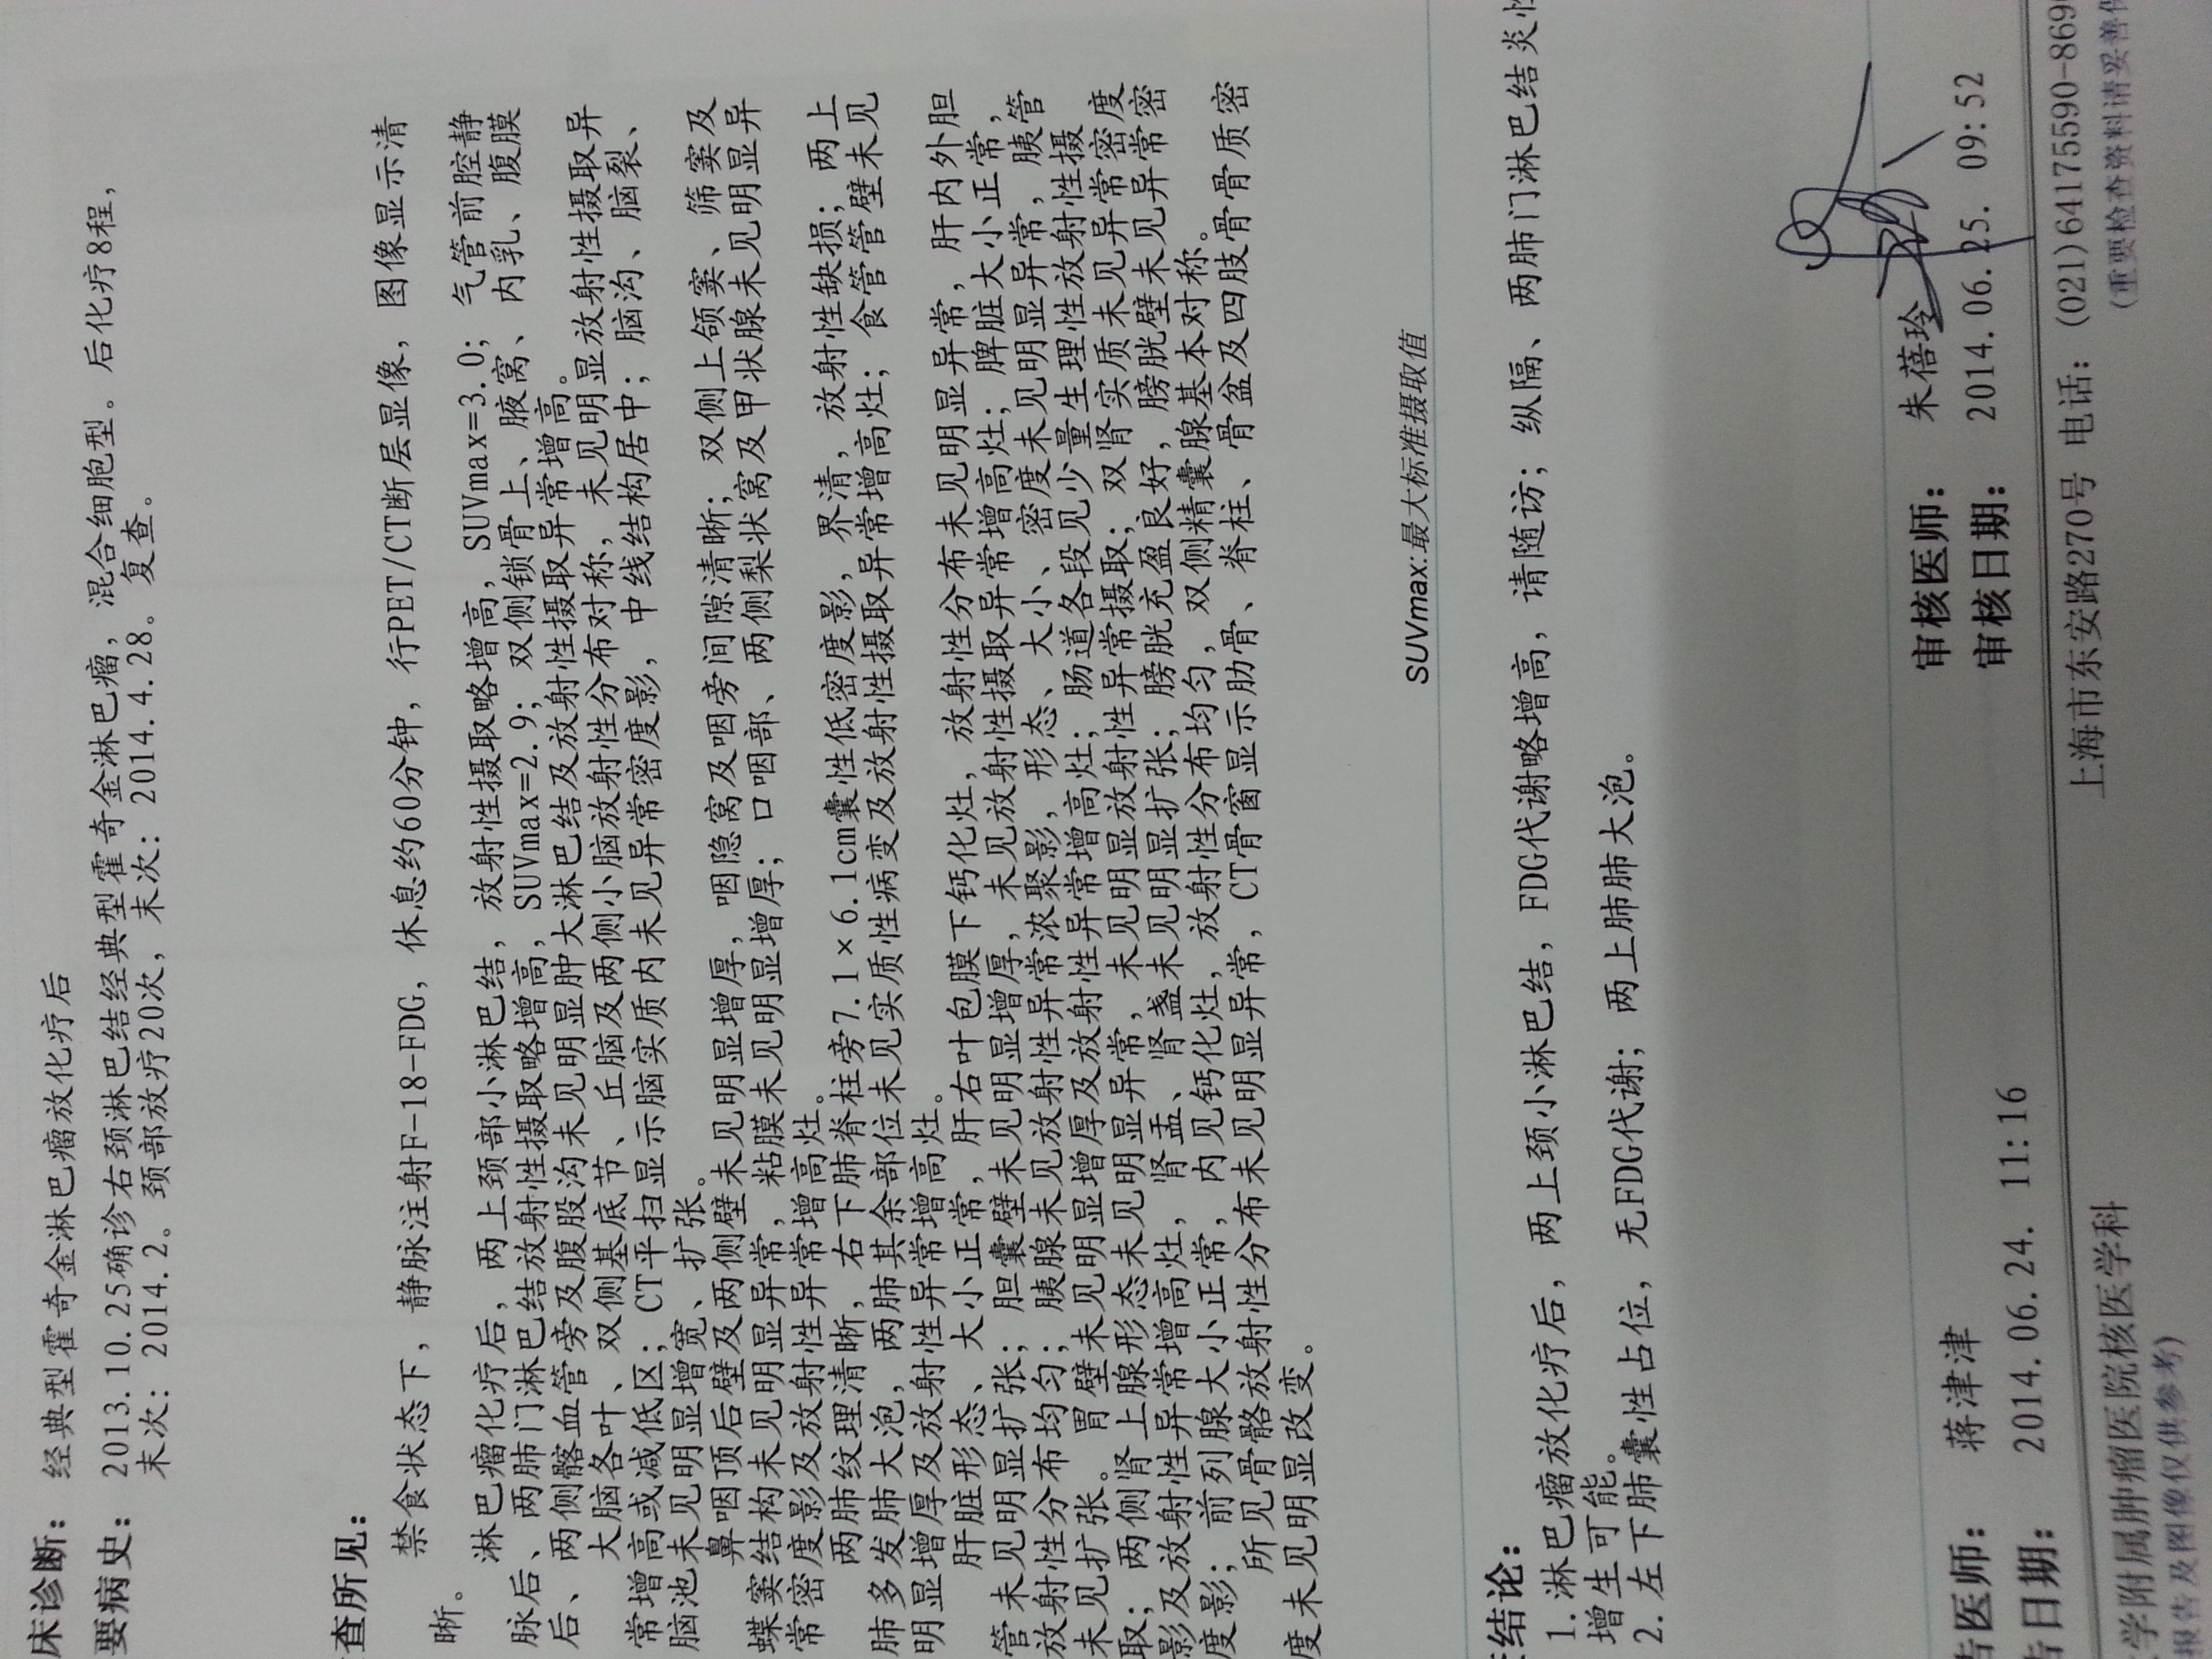 床诊断: 经典型霍奇金淋巴瘤放化疗后
要病史: 2013.10.25确诊右颈淋巴结经典型霍奇金淋巴瘤,混合细胞型。后化疗8程,
末次: 2014.2。颈部放疗20次,末次: 2014.4.28. 复查。
查所见:
禁食状态下,静脉注射F-18-FDG,休息约60分钟,行PET/CT断层显像,图像显示清
晰。
淋巴瘤化疗后,两上颈部小淋巴结,放射性摄取略增高,SUVmax=3.0; 气管前腔静
脉后、两肺门淋巴结放射性摄取略增高,SUVmax=2.9; 双侧锁骨上、腋窝、内乳、腹膜
后、两侧髂血管旁及腹股沟未见明显肿大淋巴结及放射性摄取异常增高。
大脑各叶、双侧基底节、丘脑及两侧小脑放射性分布对称,未见明显放射性摄取异
常增高或减低区; CT平扫显示脑实质内未见异常密度影,中线结构居中; 脑沟、脑裂、
脑池未见明显增宽、扩张。
鼻咽顶后壁及两侧壁未见明显增厚,咽隐窝及咽旁间隙清晰; 双侧上颌窦、筛窦及
蝶窦结构未见明显异常,粘膜未见明显增厚; 口咽部、两侧梨状窝及甲状腺未见明显异
常密度影及放射性异常增高灶。
两肺纹理清晰,右下肺脊柱旁7.1×6.1cm囊性低密度影,界清,放射性缺损; 两上
肺多发肺大泡,两肺其余部位未见实质性病变及放射性摄取异常增高灶; 食管管壁未见
明显增厚及放射性异常增高灶。
肝脏形态、大小正常,肝右叶包膜下钙化灶,放射性分布未见明显异常,肝内外胆
管未见明显扩张; 胆囊壁未见明显增厚,未见放射性摄取异常增高灶; 脾脏大小正常,
放射性分布均匀; 胰腺未见放射性异常浓聚影,形态、大小、密度未见明显异常,胰管
未见扩张。胃壁未见明显增厚及放射性异常增高灶; 肠道各段见少量生理性放射性摄
取; 两侧肾上腺形态未见明显异常,未见明显放射性异常摄取; 双肾实质未见异常密度
影及放射性异常增高灶,肾盂、肾盏未见明显扩张; 膀胱充盈良好,膀胱壁未见异常密
度影; 前列腺大小正常,内见钙化灶,放射性分布均匀,双侧精囊腺基本对称。
所见骨骼放射性分布未见明显异常,CT骨窗显示肋骨、脊柱、骨盆及四肢骨骨质密
度未见明显改变。
SUVmax:最大标准摄取值
结论:
1.淋巴瘤放化疗后,两上颈小淋巴结,FDG代谢略增高,请随访; 纵隔、两肺门淋巴结炎性
增生可能。
2.左下肺囊性占位,无FDG代谢; 两上肺肺大泡。
告医师: 蒋津津 审核医师: 朱蓓玲
告日期: 2014.06.24. 11:16 审核日期: 2014.06.25. 09:52
学附属肿瘤医院核医学科 上海市东安路270号 电话: (021)64175590-869
报告及图像仅供参考) (重要检查资料请妥善保